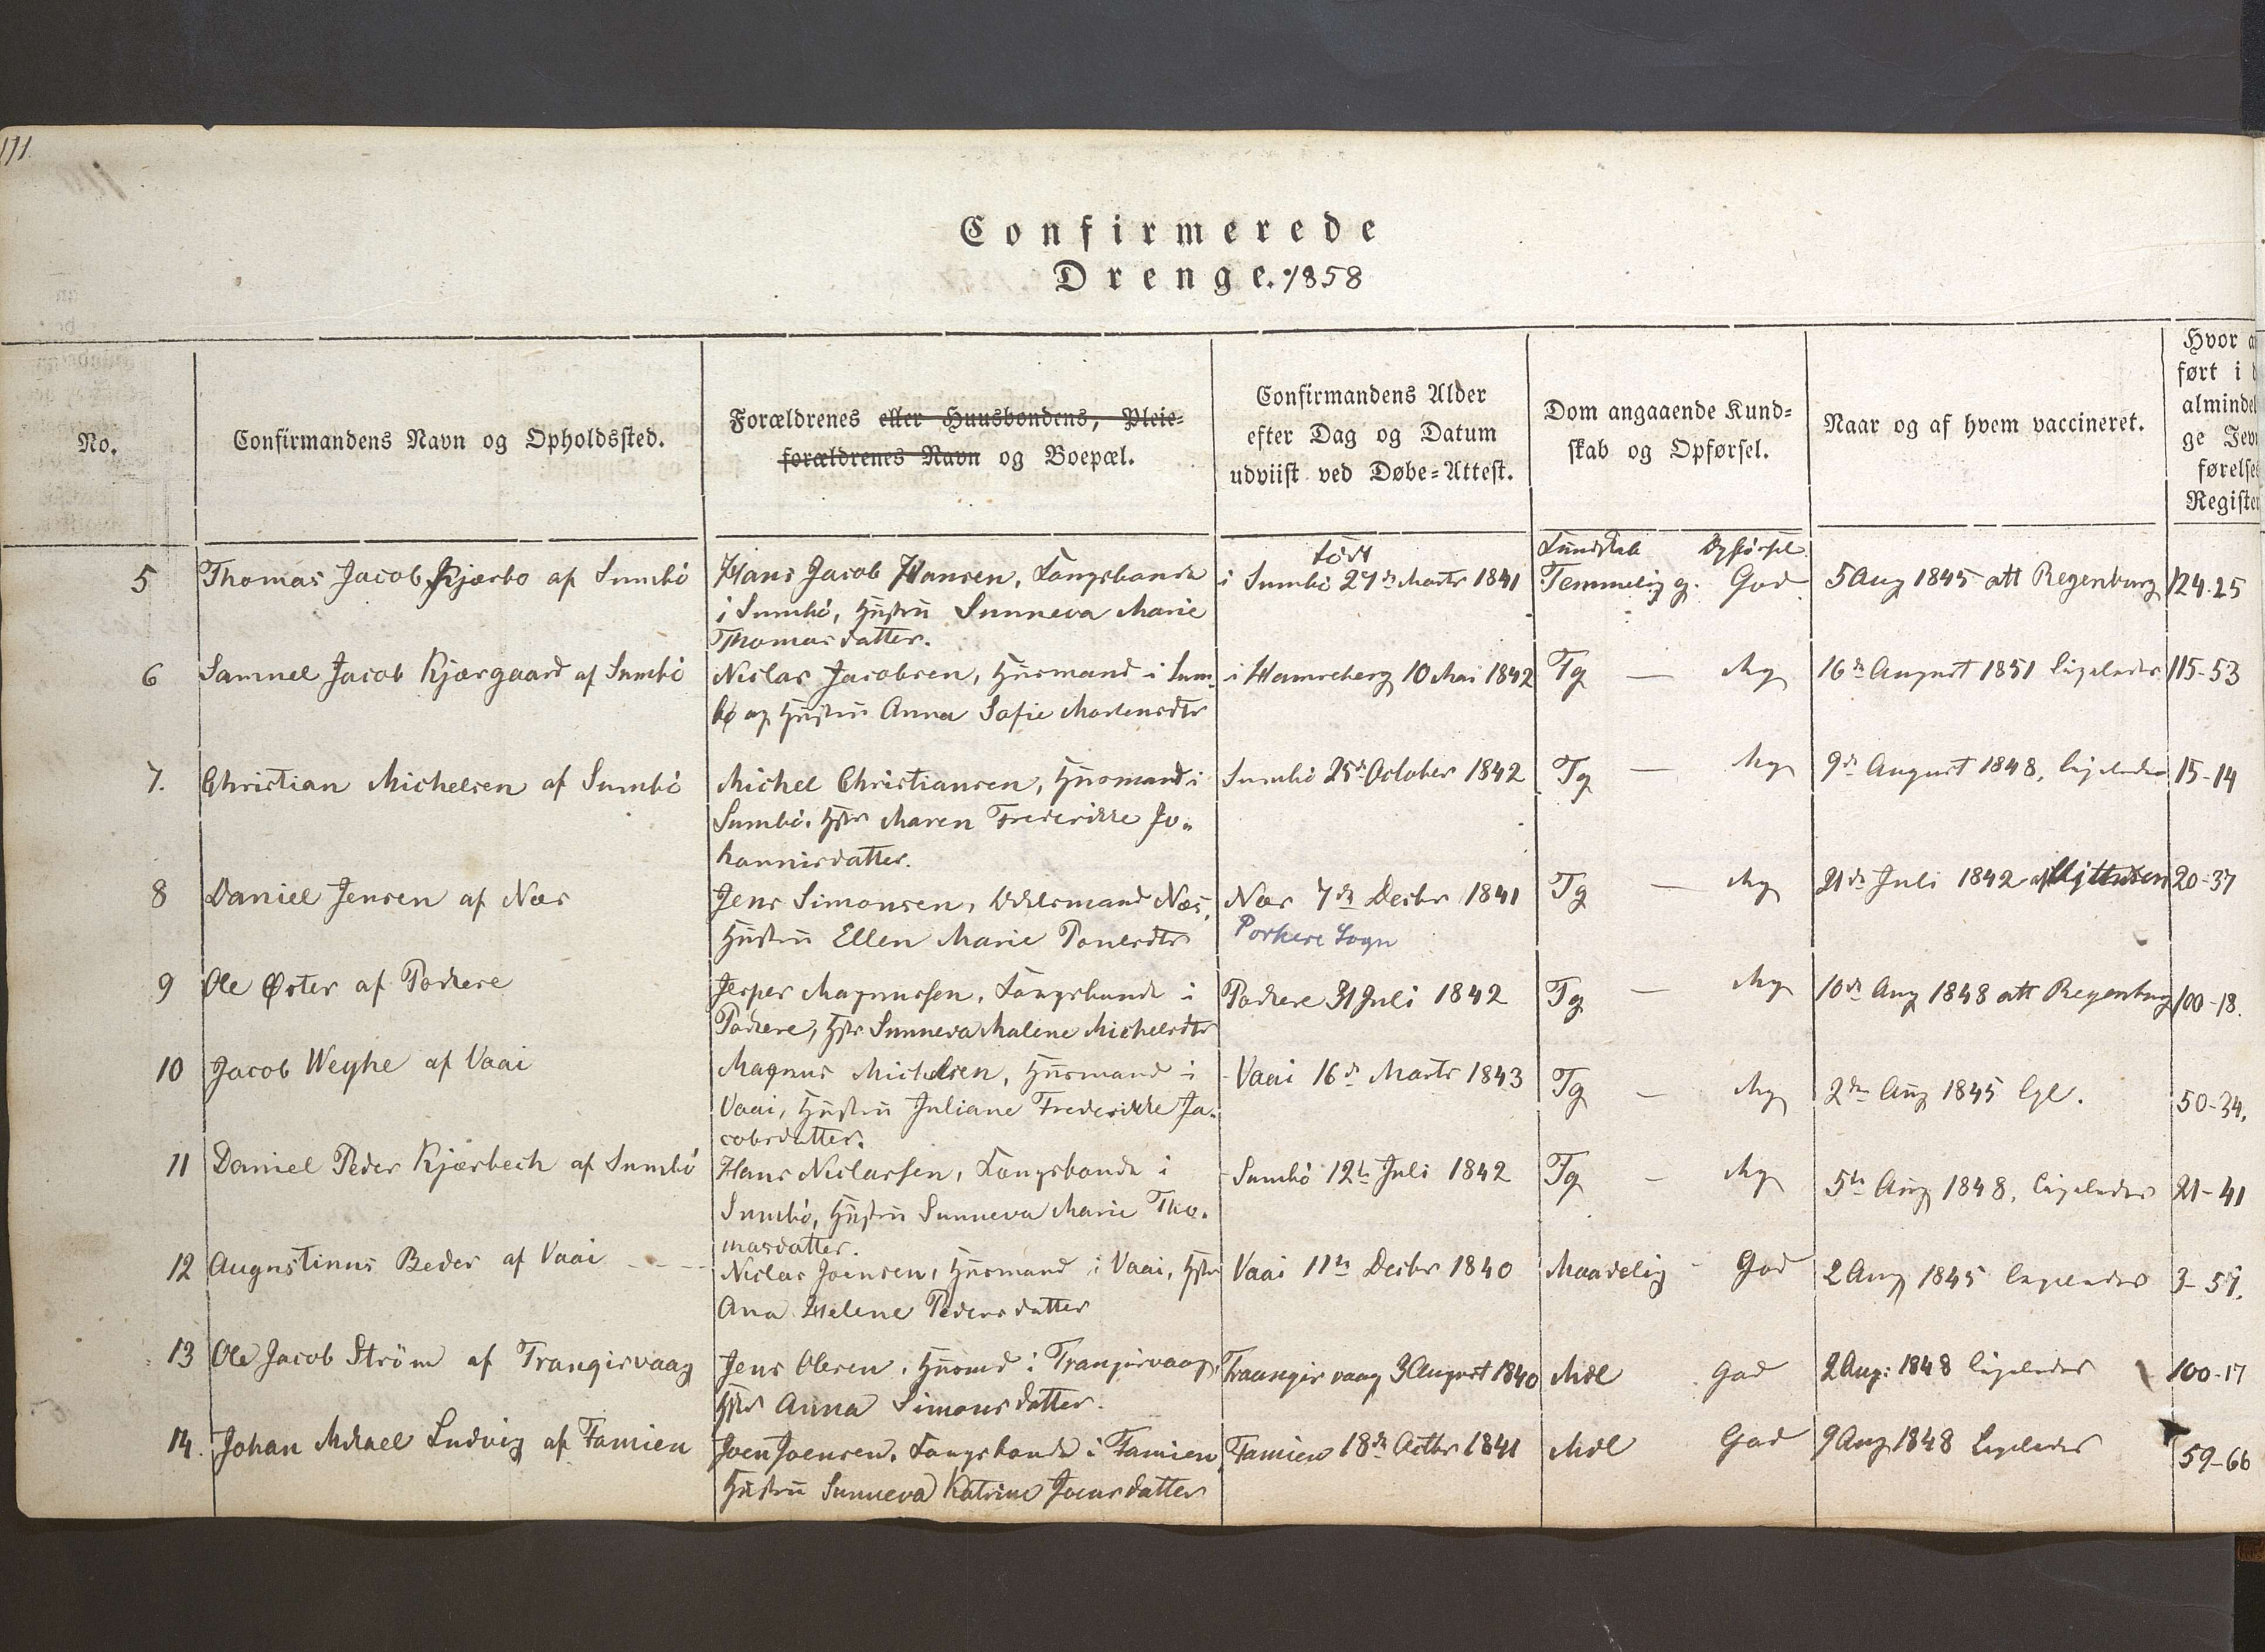 171.
Confirmerede
Drenge. 1858
No.
Confirmandens Navn og Opholdssted.
Forældrenes eller Huusbondens, Pleie-
forældrenes Navn og Boepæl.
Confirmandens Alder
efter Dag og Datum
udviist ved Døbe-Attest.
Dom angaaende Kund-
skab og Opførsel.
Naar og af hvem vaccineret.
Hvor
ført i
almindel
ge Jev
førelse
Register
5 Thomas Jacob Kjærbo af Sumbö
Hans Jacob Hansen, Kongsbonde
i Sumbö, Hustru Sunneva Marie
Thomasdatter.
født
i Sumbö 27de Marts 1841
Kundskab Opførsel
Temmelig g. God
5 Aug 1845 att Regenburg
124.25
6 Samuel Jacob Kjærgaard af Sumbö
Niclas Jacobsen, Huusmand i Sum-
bø og Hustru Anna Sofie Mortensdtr
i Hamreberg 10 Mai 1842
Tg — Mg
16de August 1851 ligeledes
115-53
7. Christian Michelsen af Sumbö
Michel Christiansen, Huusmand i
Sumbö. Hstr Maren Frederikke Jo-
hannisdatter.
Sumbö 25de October 1842
Tg — Mg
9de August 1848, ligeledes
15-14
8 Daniel Jensen af Næs
Jens Simonsen, Odelsmand Næs,
Hustru Ellen Marie Poulsdtr
Næs 7de Decbr 1841
Porkere Sogn
Tg — Mg
21de Juli 1842 af
20-37
9 Ole Öster af Porkere
Jesper Magnussen, Kongsbonde i
Porkere, Hstr Sunneva Malene Michelsdtr
Porkere 31 Juli 1842
Tg — Mg
10de Aug 1848 att Regenburg
100-18.
10 Jacob Weyhe af Vaai
Magnus Michelsen, Huusmand i
Vaai, Hustru Juliane Frederikke Ja-
cobsdatter.
Vaai 16de Marts 1843
Tg — Mg
2den Aug 1845 lgl.
50-34.
11 Daniel Peder Kjærbech af Sumbö
Hans Niclassen, Kongsbonde i
Sumbö, Hustru Sunneva Marie Tho-
masdatter.
Sumbö 12te Juli 1842
Tg — Mg
5te Aug 1848, ligeledes
21-41
12 Augustinus Beder af Vaai
Niclas Joensen, Huusmand i Vaai, Hstr
Ana Helene Pedersdatter
Vaai 11te Decbr 1840
Maadelig God
2 Aug 1845 ligeledes
3-57.
13 Ole Jacob Ström af Trangisvaag
Jens Olesen, Huusmd i Trangisvaag,
Hstr Anna Simonsdatter.
Traangisvaag 3 August 1840
Mdl God
2 Aug: 1848 ligeledes
100-17
14. Johan Mikael Ludvig af Famien
Joen Joensen, Kongsbonde i Famien,
Hustru Sunneva Katrine Joensdatter
Famien 18de Octbr 1841
Mdl God
9 Aug 1848 Ligeledes
59-66